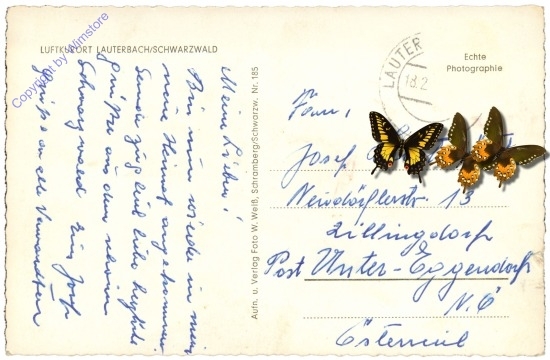 LUFTKURORT LAUTERBACH/SCHWARZWALD
Meine Lieben!
Bin nun wieder in
meine Heimat angekommen
Sende Euch
Grüße aus dem schönen
Schwarzwald Euer Josef
Grüße an alle Verwandten
Aufn. u. Verlag Foto W. Weiß, Schramberg/Schwarzw. Nr. 185
LAUTER
18.2
Echte
Photographie
Fam.
Josef
Neudörflerstr. 13
Zillingdorf
Post Unter-Eggendorf
N.Ö
Österreich
Copyright by Mimstore